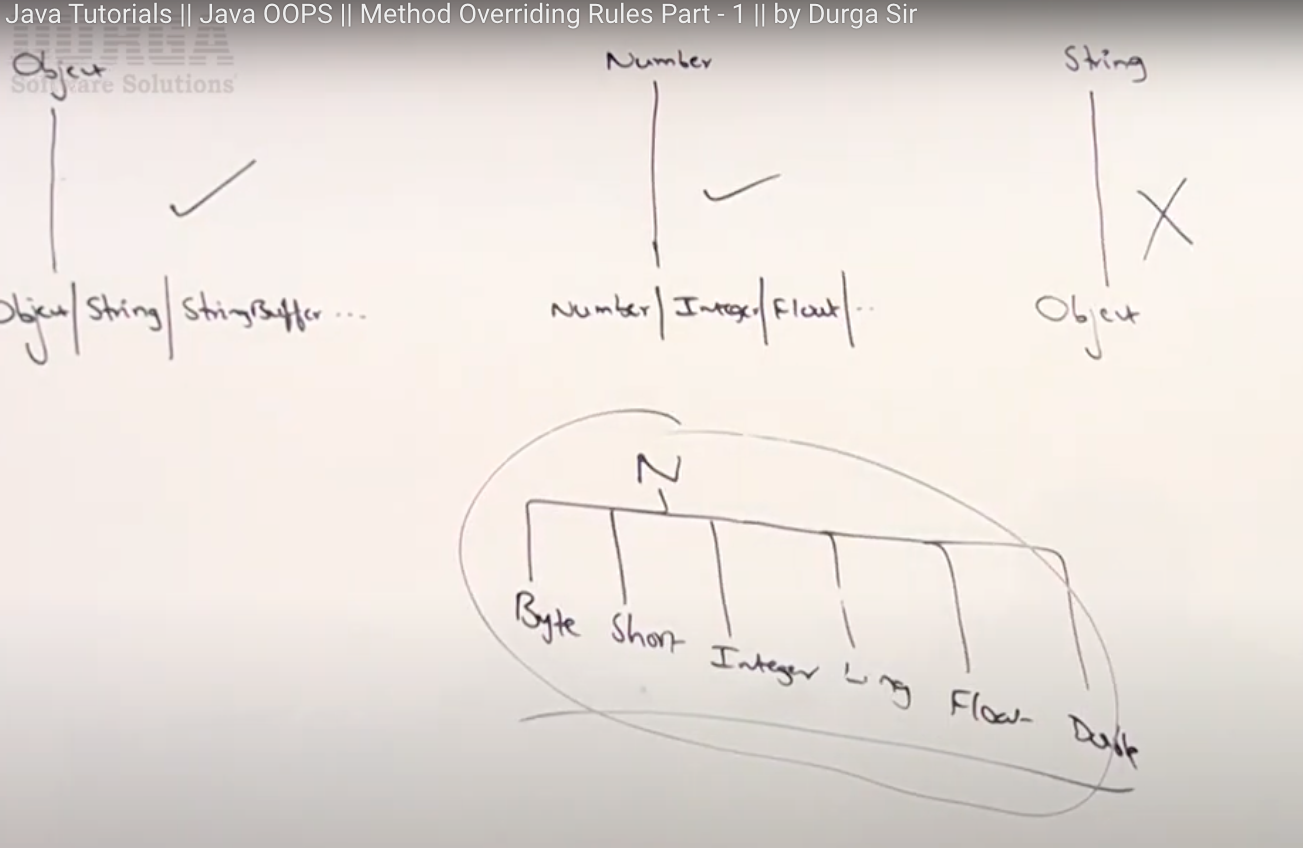 Java Tutorials || Java OOPS || Method Overriding Rules Part - 1 || by Durga Sir
DURGA
Software Solutions
Object Number String
Object | String | StringBuffer ... Number | Integer | Float | .. Object
N
Byte Short Integer Long Float Double